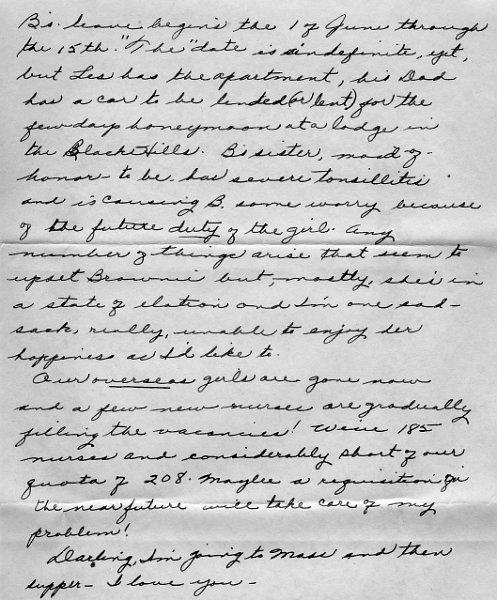 B's. leave begins the 1 of June through
the 15th. "The" date is indefinite, yet,
but Les has the apartment, his Dad
has a car to be lended (or lent) for the
few days honeymoon at a lodge in
the Black Hills. B's sister, maid-of-
honor-to be- has severe tonsillitis
and is causing B. some worry because
of the future duty of the girl. Any
number of things arise that seem to
upset Brownie but, mostly, she's in
a state of elation and I'm one sad-
sack, really, unable to enjoy her
happiness as I'd like to.
Our overseas girls are gone now
and a few new nurses are gradually
filling the vacancies! We've 185
nurses and considerably short of our
quota of 208. Maybe a requisition in
the near future will take care of my
problem!
Darling, I'm going to Mass and then
supper- I love you-